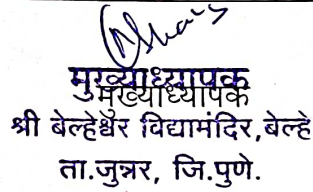 मुख्याध्यापक
मुख्याध्यापक
श्री बेल्हेश्वर विद्यामंदिर,बेल्हे
ता.जुन्नर, जि.पुणे.